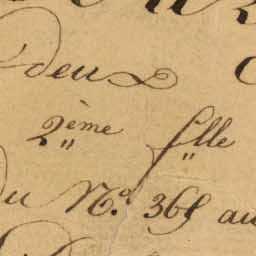 deux
2ème fille
du N.º 365 au